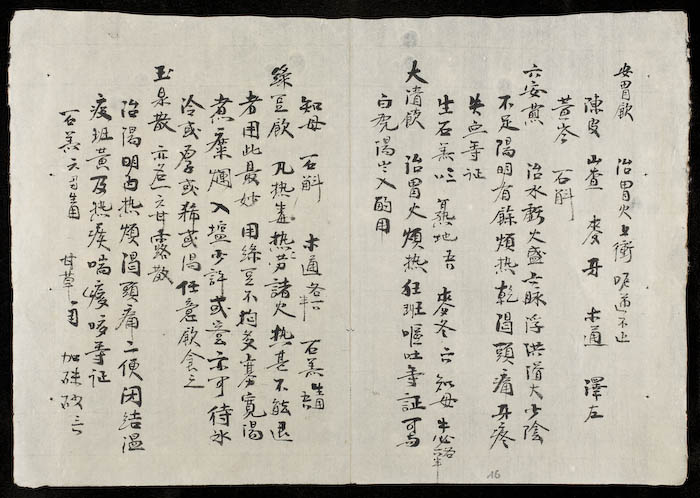 安胃飲 治胃火上衝呃逆不止
陳皮 山查 麥牙 木通 澤左
黃芩 石斛
六安煎 治水虧火盛六脉浮洪滑大少陰
不足陽明有餘煩热乾渴頭痛牙疼
失血等証
生石羔 熟地 麥冬 知母 牛必各
大清飲 治胃火煩热狂班嘔吐等証可与
白虎湯出入酌用
知母 石斛 木通各 石羔生用
綠豆飲 凡热毒热劳諸火热甚不能退
者用此最妙 用綠豆不拘多寡寛湯
煮糜爛入塩少許或蜜亦可待冰
冷或厚或稀或湯任意飲食之
玉泉散 亦名六一甘露散
治陽明内热煩渴頭痛二便闭結温
疫班黃及热痰喘嗽等証
石羔六生用 甘草一 加硃砂三
16